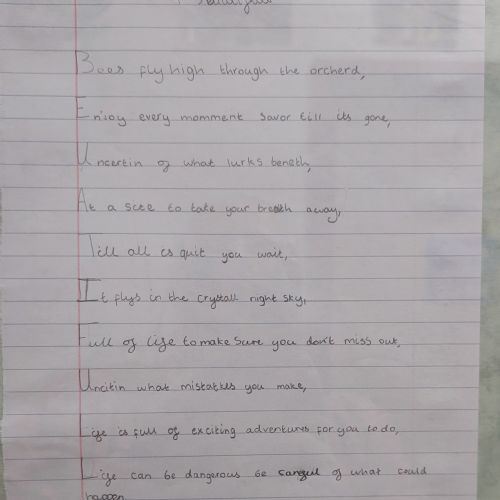 Bees fly high through the orcherd,
Enjoy every momment savor till its gone,
Uncertin of what lurks beneth,
At a scee to take your breath away,
Till all is quit you wait,
It flys in the crystall night sky,
Full of life to make sure you don't miss out,
Uncitin what mistakes you make,
Life is full of exciting adventures for you to do,
Life can be dangerous be careful of what could
happen